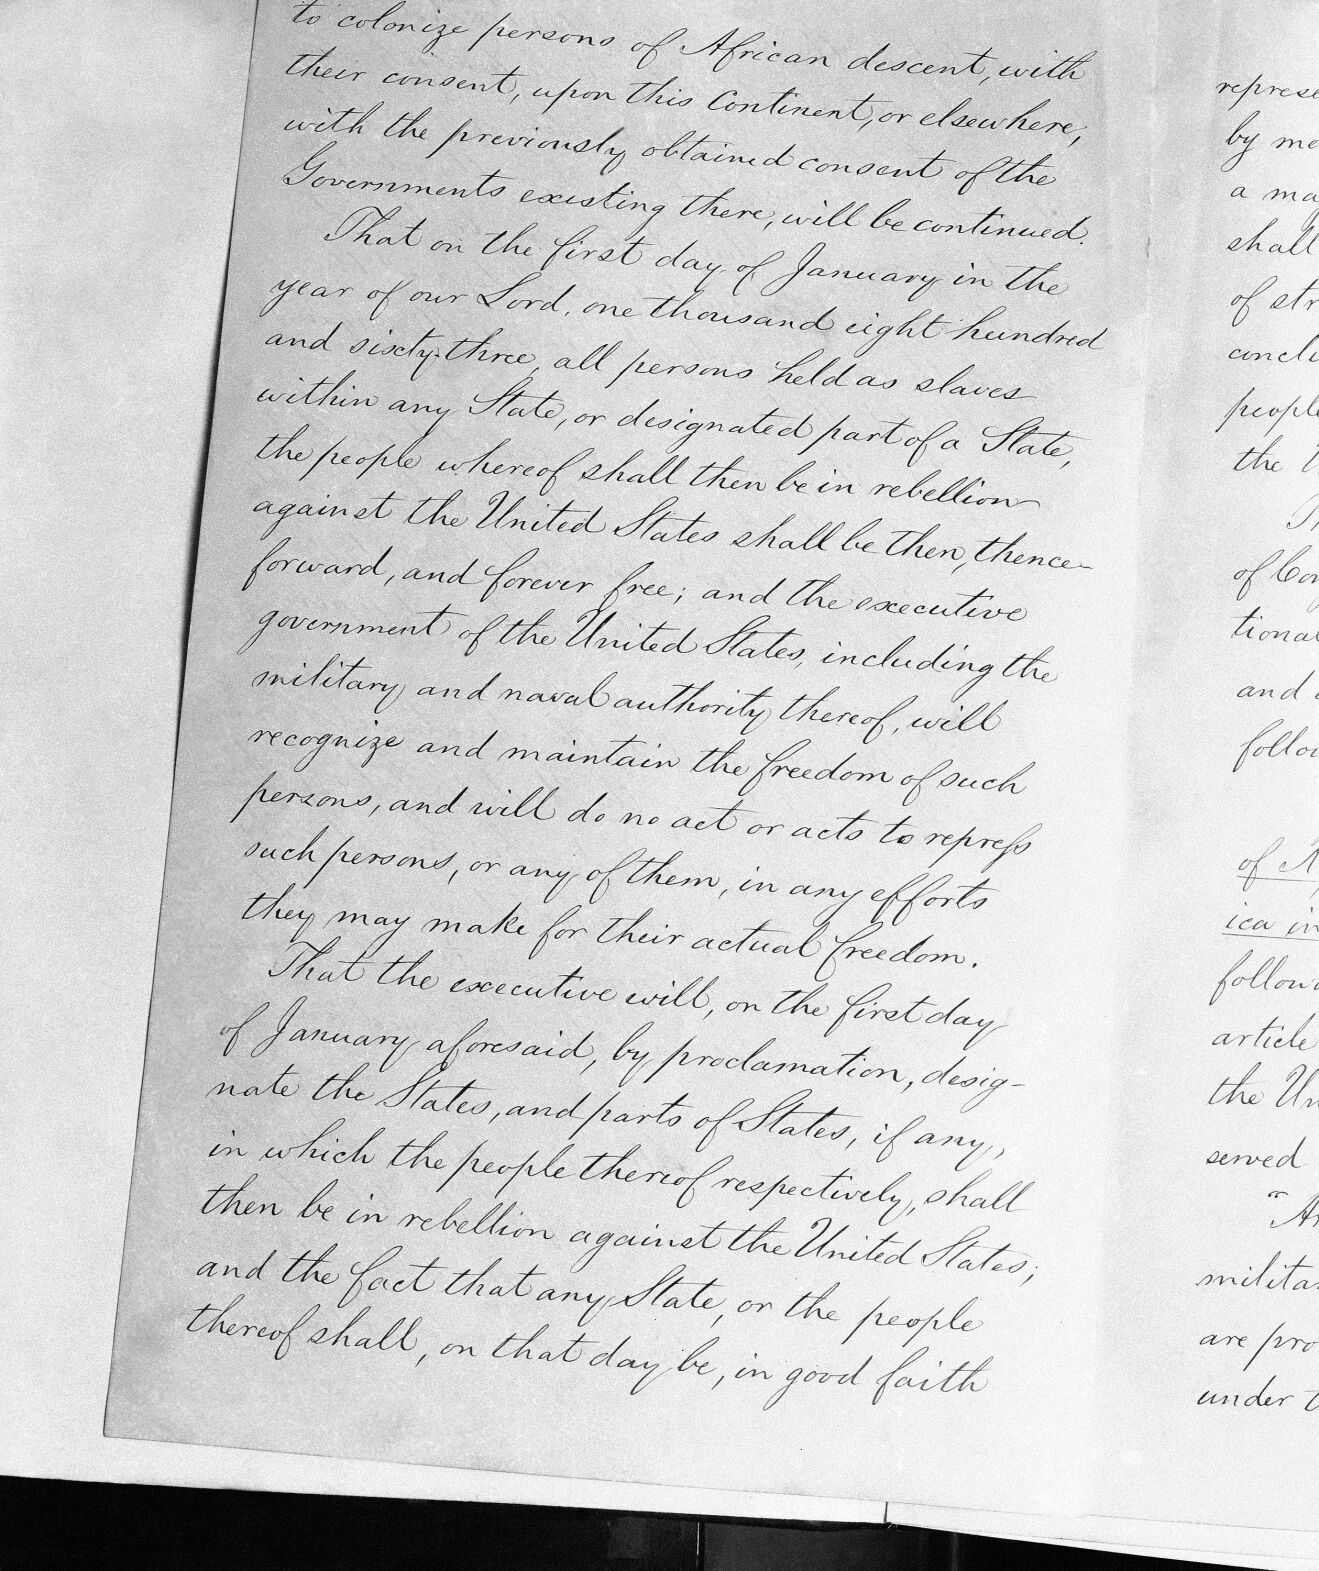 to colonize persons of African descent, with
their consent, upon this Continent, or elsewhere,
with the previously obtained consent of the
Governments existing there, will be continued.
That on the first day of January in the
year of our Lord, one thousand eight hundred
and sixty-three, all persons held as slaves
within any State, or designated part of a State,
the people whereof shall then be in rebellion
against the United States shall be then, thence-
forward, and forever free; and the executive
government of the United States, including the
military and naval authority thereof, will
recognize and maintain the freedom of such
persons, and will do no act or acts to repress
such persons, or any of them, in any efforts
they may make for their actual freedom.
That the executive will, on the first day
of January aforesaid, by proclamation, desig-
nate the States, and parts of States, if any,
in which the people thereof respectively, shall
then be in rebellion against the United States;
and the fact that any State, or the people
thereof shall, on that day be, in good faith
by
a
shall
of
people
the
of
and
of
ica in
article
the
served
are
under